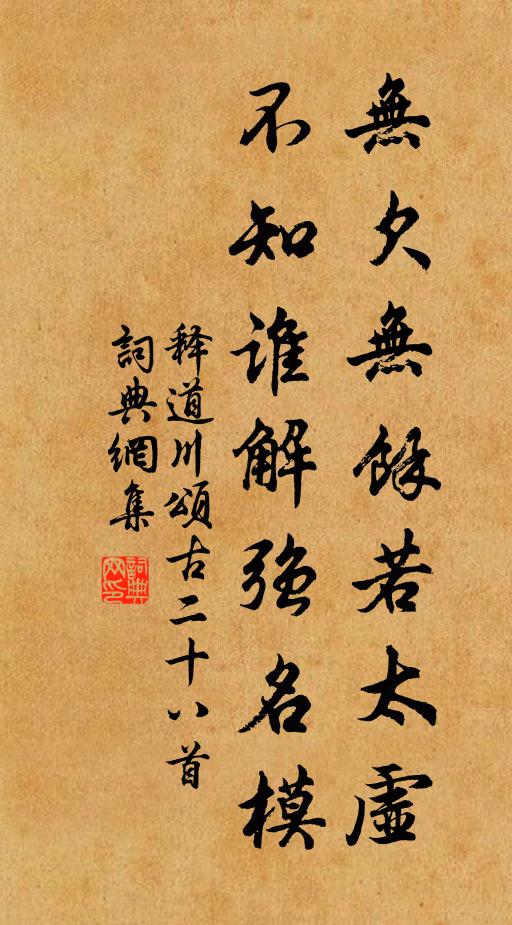 無欠無餘若太虛
不知誰解強名模
释道川頌古二十八首
詞典網集
詞典網印